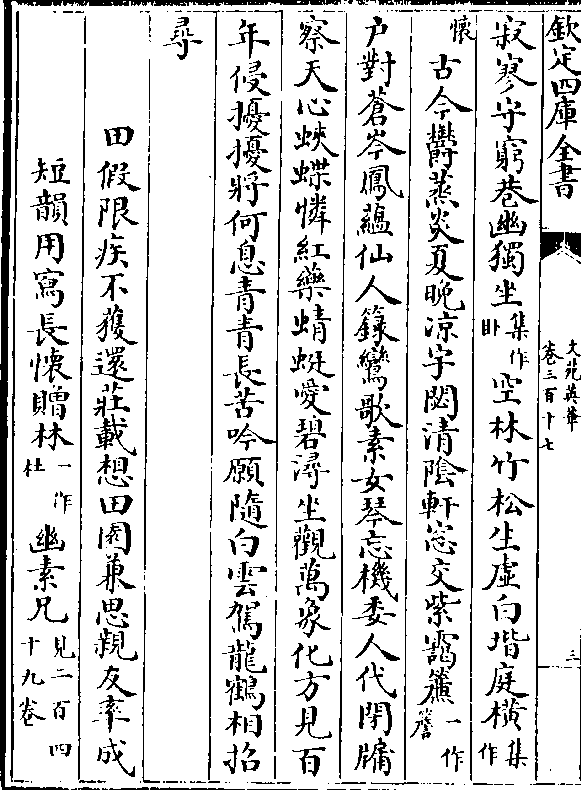 欽定四庫全書
文苑英華
卷三百十七
三
寂寥守窮巷幽獨坐集作卧空林竹松生虛白堦庭橫集作
懷古今鬱蒸炎夏晚涼宇閟清陰軒窓交紫靄簷一作簷
户對蒼岑鳳蘊仙人籙鸞歌素女琴忘機委人代閉牖
察天心蛺蝶憐紅藥蜻蜓愛碧潯坐觀萬象化方見百
年侵擾擾將何息青青長苦吟願隨白雲駕龍鶴相招
尋
田假限疾不獲還莊載想田園兼思親友率成
短韻用寫長懷贈林一作杜幽素凡見二百四十九卷